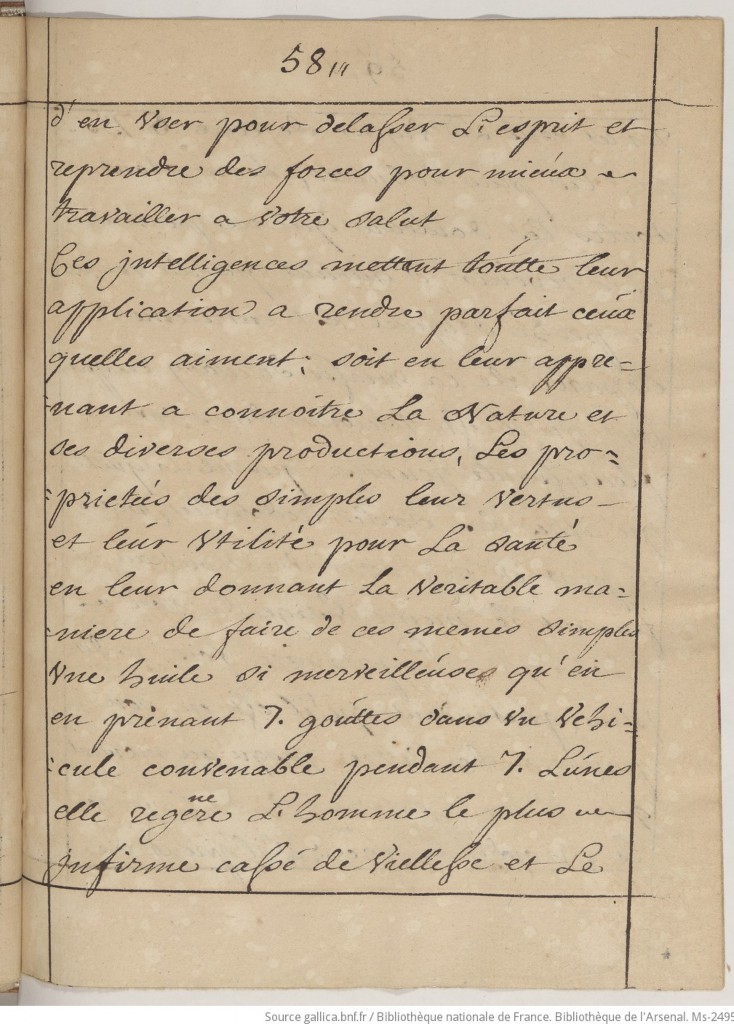 58
d'en vser pour delasser L'esprit et
reprendre des forces pour mieux
travailler a votre salut
Ces jntelligences mettent toutte leur
application a rendre parfait ceux
quelles aiment; soit en leur appre=
=nant a connoitre La Nature et
ses diverses productions, Les pro=
=prietés des simples leur vertus
et leur vtilité pour La santé
en leur donnant La veritable ma=
=niere de faire de ces memes simples
vne huile si merveilleuse qu'en
en prenant 7. gouttes dans vn vehi=
=cule convenable pendant 7. Lunes
elle regenere L'homme le plus
jnfirme cassé de viellesse et Le
Source gallica.bnf.fr / Bibliothèque nationale de France. Bibliothèque de l'Arsenal. Ms-2495